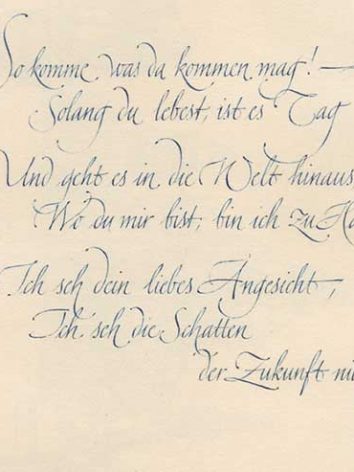 So komme, was da kommen mag! —
Solang du lebest, ist es Tag
Und geht es in die Welt hinaus
Wo du mir bist, bin ich zu Ha
Ich seh dein liebes Angesicht,
Ich seh die Schatten
der Zukunft ni